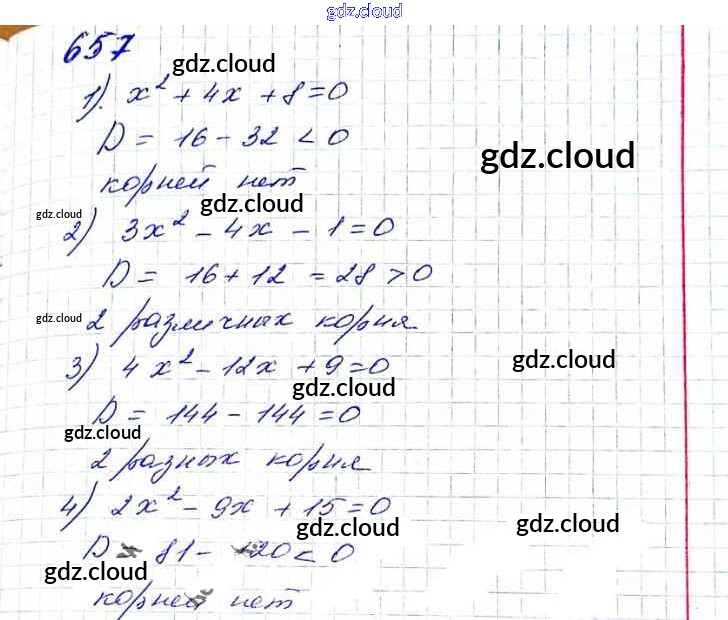 gdz.cloud
657
gdz.cloud
1). x² + 4x + 8 = 0
D = 16 - 32 < 0
gdz.cloud
корней нет
gdz.cloud
gdz.cloud
2) 3x² - 4x - 1 = 0
D = 16 + 12 = 28 > 0
gdz.cloud
2 различных корня
3) 4x² - 12x + 9 = 0
gdz.cloud
gdz.cloud
D = 144 - 144 = 0
gdz.cloud
2 разных корня
4) 2x² - 9x + 15 = 0
gdz.cloud
gdz.cloud
D = 81 - 120 < 0
gdz.cloud
корней нет